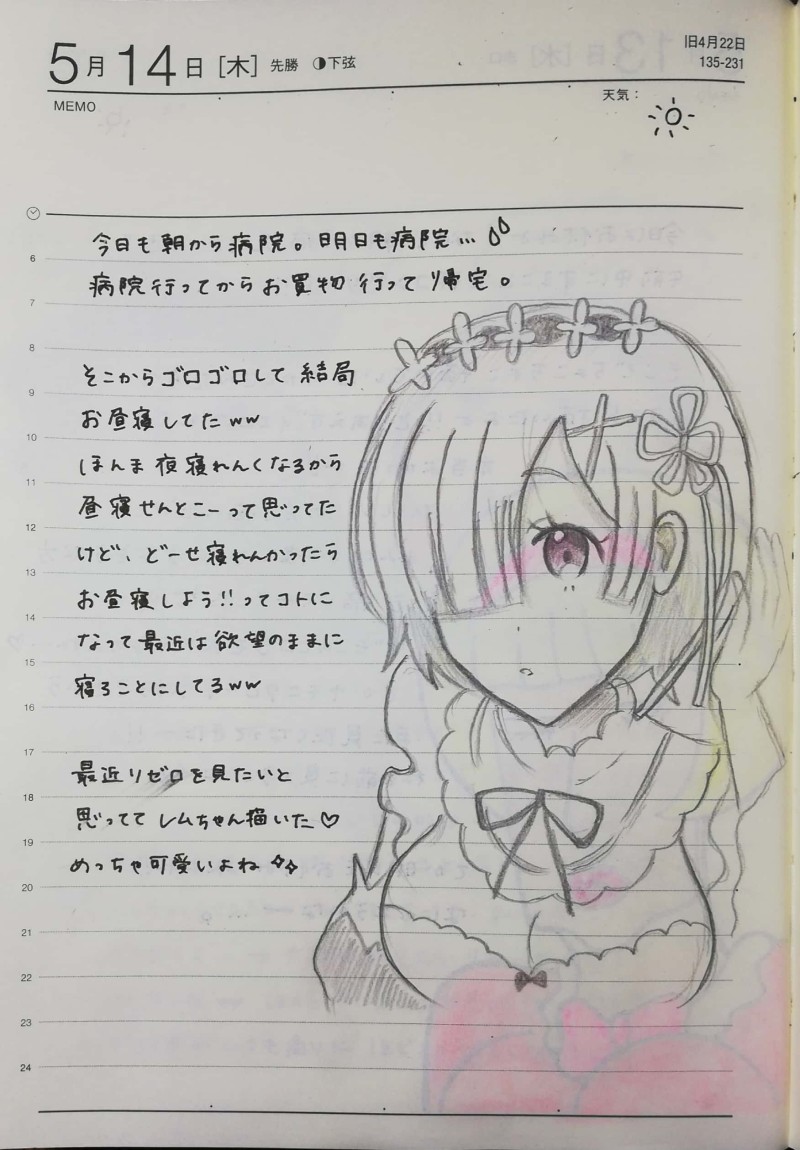 5月14日[木] 先勝 ◑下弦
旧4月22日
135-231
MEMO
天気：
今日も朝から病院。明日も病院…
病院行ってからお買物行って帰宅。
そこからゴロゴロして結局
お昼寝してたww
ほんま夜寝れんくなるから
昼寝せんとこーって思ってた
けど、どーせ寝れんかったら
お昼寝しよう!!ってコトに
なって最近は欲望のままに
寝ることにしてるww
最近リゼロを見たいと
思ってて レムちゃん描いた♡
めっちゃ可愛いよね✧✧
6
7
8
9
10
11
12
13
14
15
16
17
18
19
20
21
22
23
24